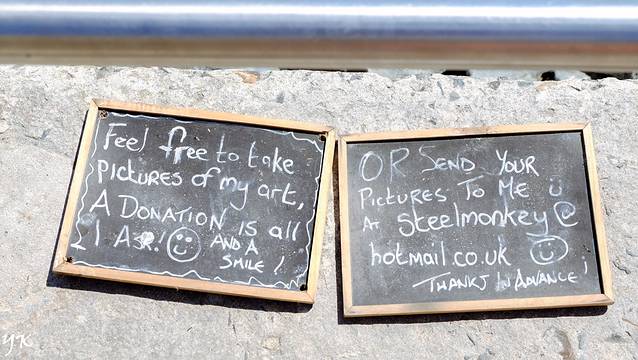 Feel free to take
pictures of my art,
A DONATION is all
I ASK! AND A
SMILE !
OR SEND YOUR
PICTURES TO ME
AT Steelmonkey@
hotmail.co.uk
THANKS IN ADVANCE!
YK